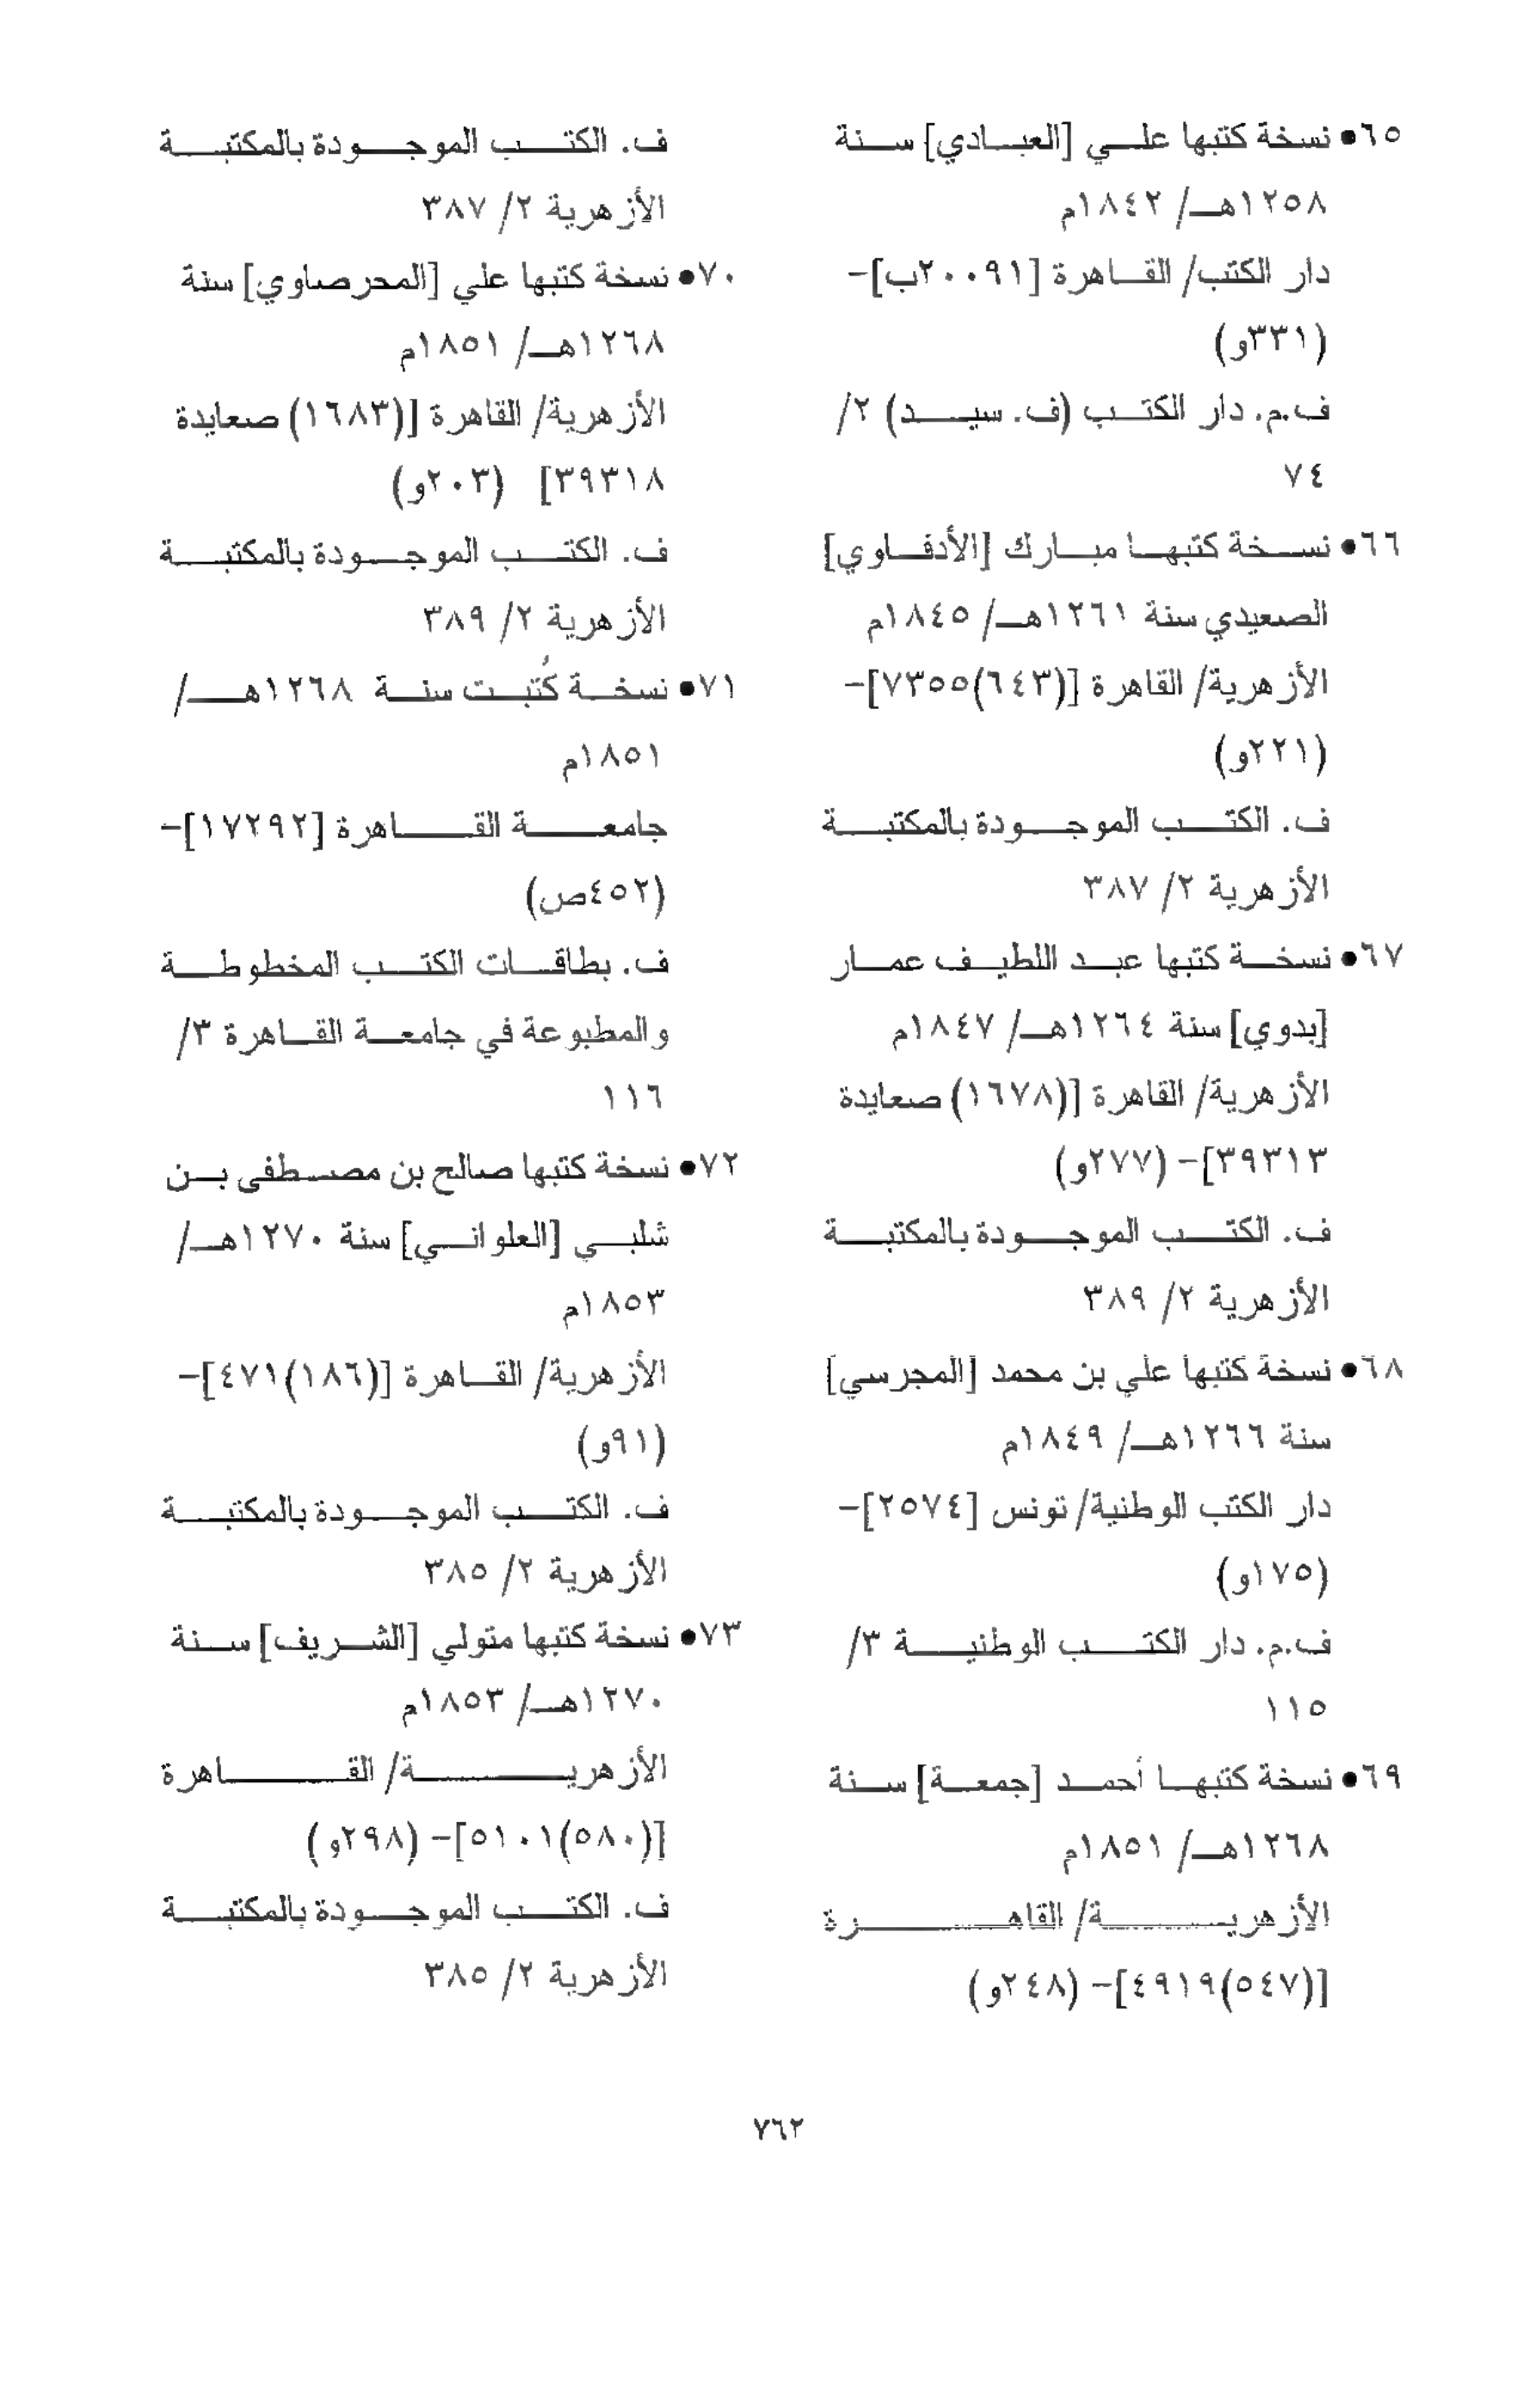 ٦٥● نسخة كتبها علي [العبادي] سنة
١٢٥٨هـ/ ١٨٤٢م
دار الكتب/ القاهرة [٢٠٠٩١ب]-
(٣٣١و)
ف.م. دار الكتب (ف. سيد) ٢/
٧٤
٦٦● نسخة كتبها مبارك [الأدفاوي]
الصعيدي سنة ١٢٦١هـ/ ١٨٤٥م
الأزهرية/ القاهرة [(٦٤٣)٧٣٥٥]-
(٢٢١و)
ف. الكتب الموجودة بالمكتبة
الأزهرية ٢/ ٣٨٧
٦٧● نسخة كتبها عبد اللطيف عمار
[بدوي] سنة ١٢٦٤هـ/ ١٨٤٧م
الأزهرية/ القاهرة [(١٦٧٨) صعايدة
٣٩٣١٣]- (٢٧٧و)
ف. الكتب الموجودة بالمكتبة
الأزهرية ٢/ ٣٨٩
٦٨● نسخة كتبها علي بن محمد [المجرسي]
سنة ١٢٦٦هـ/ ١٨٤٩م
دار الكتب الوطنية/ تونس [٢٥٧٤]-
(١٧٥و)
ف.م. دار الكتب الوطنية ٣/
١١٥
٦٩● نسخة كتبها أحمد [جمعة] سنة
١٢٦٨هـ/ ١٨٥١م
الأزهرية/ القاهرة
[(٥٤٧)٤٩١٩]- (٢٤٨و)
ف. الكتب الموجودة بالمكتبة
الأزهرية ٢/ ٣٨٧
٧٠● نسخة كتبها علي [المحرصاوي] سنة
١٢٦٨هـ/ ١٨٥١م
الأزهرية/ القاهرة [(١٦٨٣) صعايدة
٣٩٣١٨] (٢٠٣و)
ف. الكتب الموجودة بالمكتبة
الأزهرية ٢/ ٣٨٩
٧١● نسخة كُتبت سنة ١٢٦٨هـ/
١٨٥١م
جامعة القاهرة [١٧٢٩٢]-
(٤٥٢ص)
ف. بطاقات الكتب المخطوطة
والمطبوعة في جامعة القاهرة ٣/
١١٦
٧٢● نسخة كتبها صالح بن مصطفى بن
شلبي [العلواني] سنة ١٢٧٠هـ/
١٨٥٣م
الأزهرية/ القاهرة [(١٨٦)٤٧١]-
(٩١و)
ف. الكتب الموجودة بالمكتبة
الأزهرية ٢/ ٣٨٥
٧٣● نسخة كتبها متولي [الشريف] سنة
١٢٧٠هـ/ ١٨٥٣م
الأزهرية/ القاهرة
[(٥٨٠)٥١٠١]- (٢٩٨و)
ف. الكتب الموجودة بالمكتبة
الأزهرية ٢/ ٣٨٥
٧٦٢